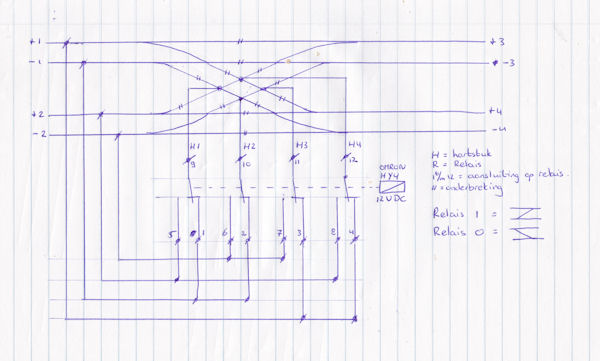 +1 +3
-1 -3
+2 +4
-2 -4
H1 H2 H3 H4
9 10 11 12
OMRON
MY4
12VDC
5 1 6 2 7 3 8 4
H = hartstuk
R = Relais
1 t/m 12 = aansluiting op relais.
// = onderbreking
Relais 1 =
Relais 0 =